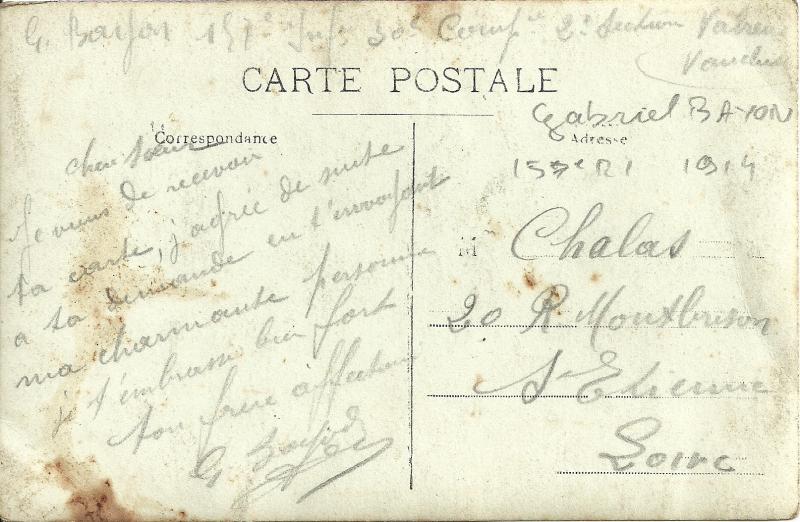 G. Bayon 157e Inf. 30e Compie 2e Section Valréas
Vaucluse
CARTE POSTALE
Correspondance
Adresse
Gabriel BAYON
157e RI 1914
cher Sœur
Je viens de recevoir
ta carte, j'agrée de suite
a ta demande en t'envoyant
ma charmante personne
je t'embrasse bien fort
ton frère affectionné
G Bayon
M Chalas
20 R Montbrison
St Etienne
Loire